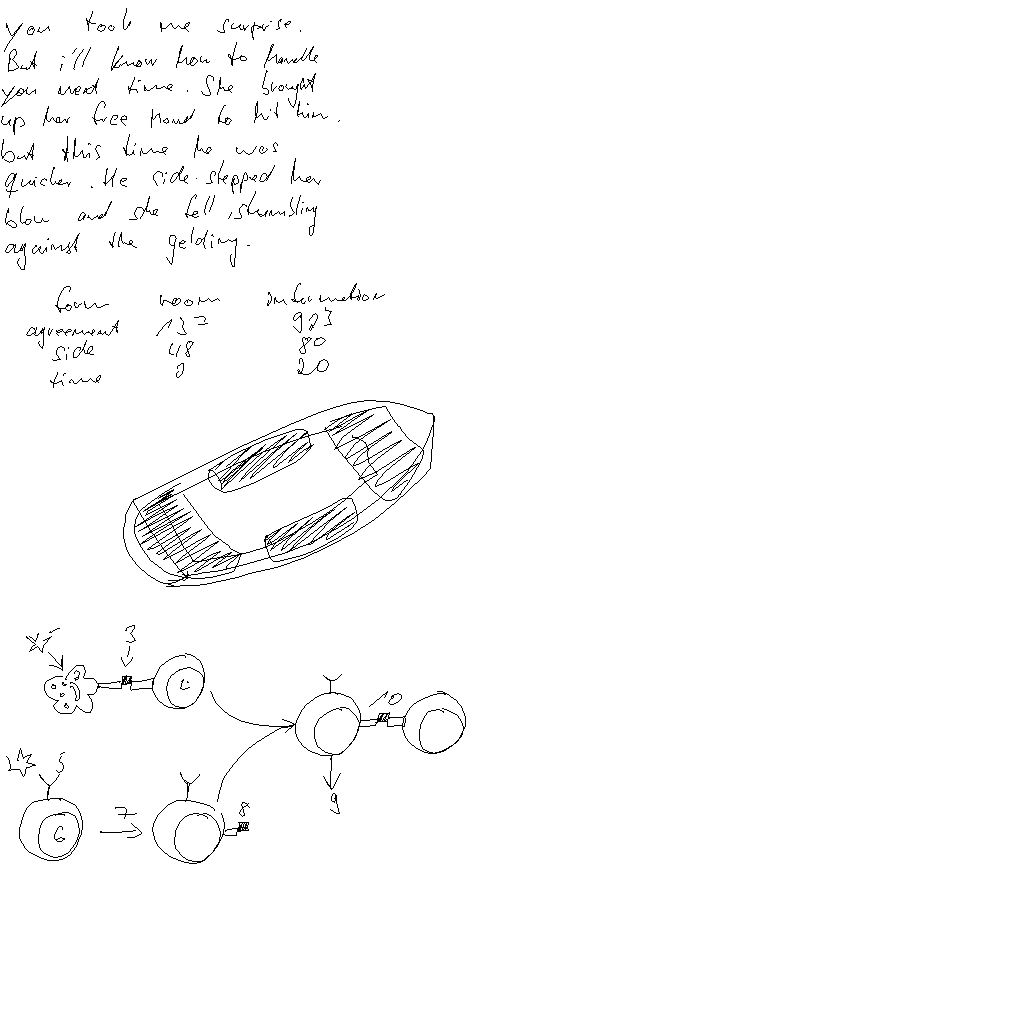 you took me surprise.
But i'll know how to handle
you next time. She brought
up her free hand to hit him.
but this time he was
quicker. He side-stepped her
blow and she fell, stumbling
against the gelding.
form room information
agreement 137 923
side 48 80
time 0 20
3
2
10
5
9
7
8
6